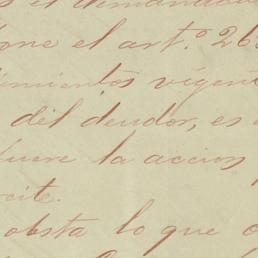 es el demandado
one el art.º 263
imientos vigen
del deudor, es
fuere la accion
cite.
obsta lo que